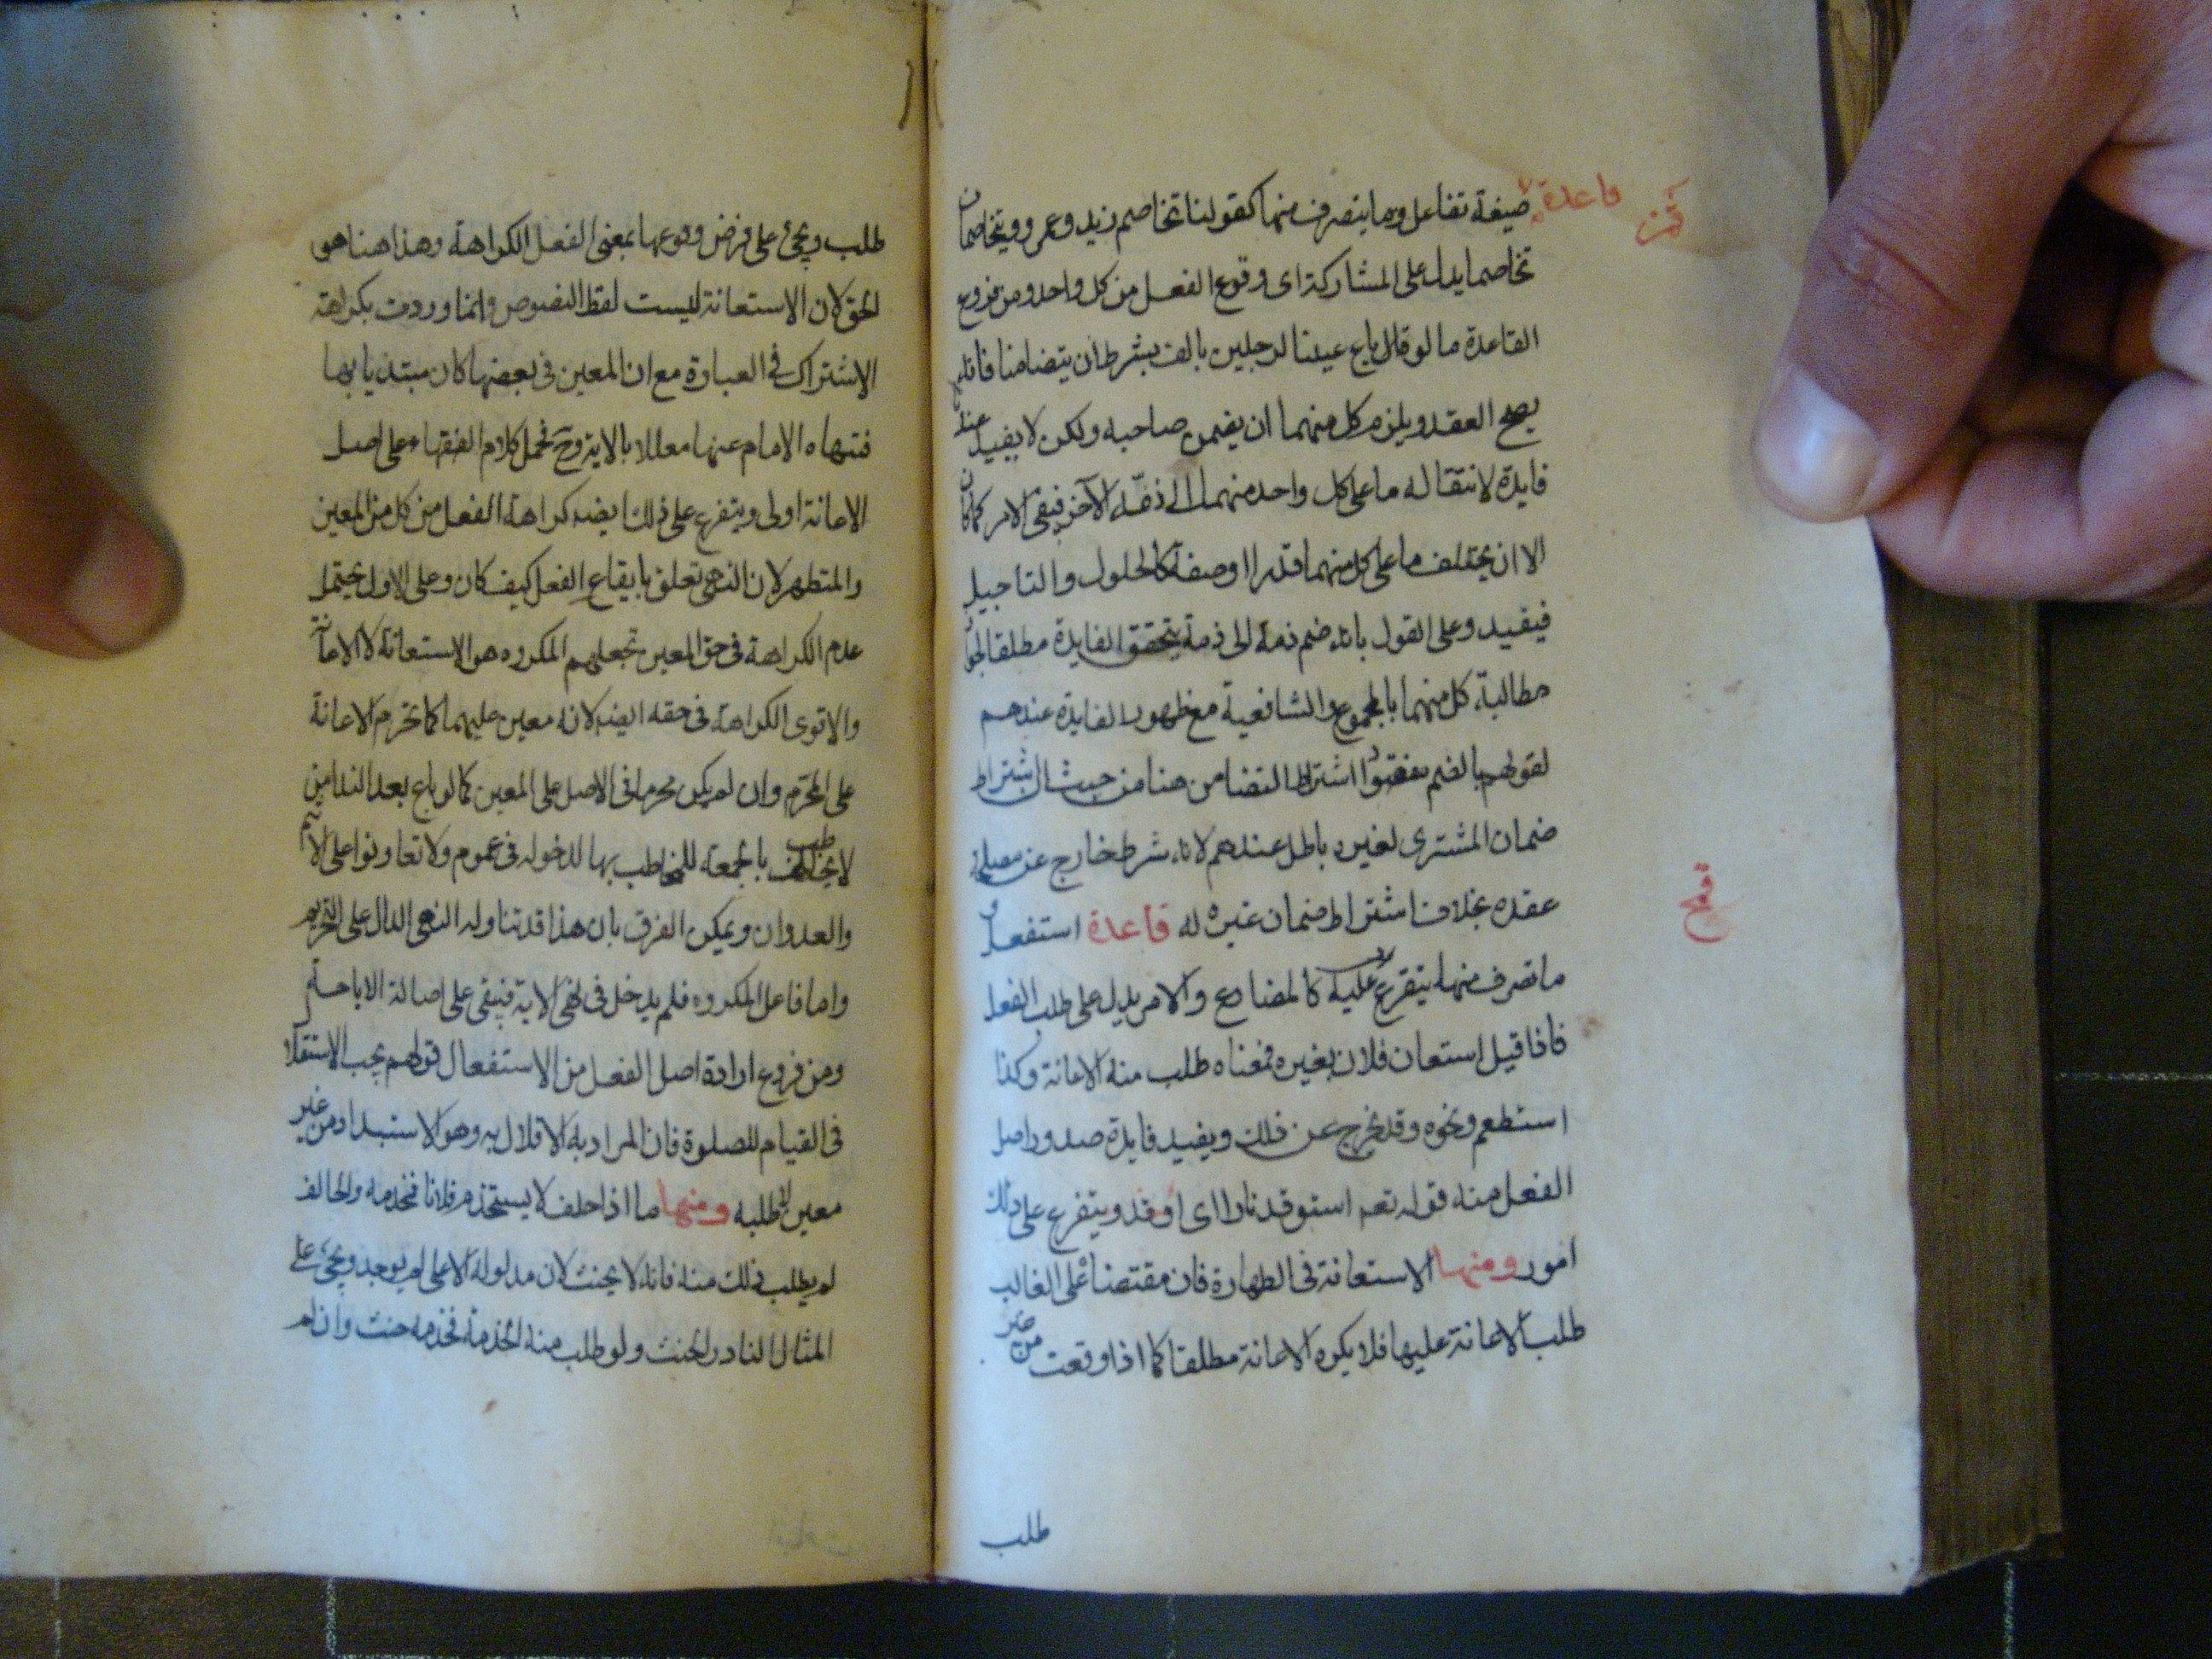 قاعدة صيغة تفاعل وما يتصرف منها كقولنا تخاصم زيد وعمرو ويتخاصمان
تخاصما يدل على المشاركة اى وقوع الفعل من كل واحد ومن فروع
القاعدة ما لو قال باع عينا لرجلين بالف بشرط ان يتضامنا فانه
يصح العقد ويلزم كل منهما ان يضمن صاحبه ولكن لا يفيد عندنا
فايدة لانتقاله ما على كل واحد منهما الى ذمة الآخر فيبقى الامر كما كان
الا ان يختلف ما على كل منهما قدرا او صفة كالحلول والتاجيل
فيفيد وعلى القول بانه ضم ذمة الى ذمة يتحقق الفايدة مطلقا لجواز
مطالبة كل منهما بالمجموع والشافعية مع ظهور الفايدة عندهم
لقولهم بالضم اشتراط التضامن هنا من حيث ان اشتراط
ضمان المشترى لغيره باطل عندهم لانه شرط خارج عن مصلحة
عقده بخلاف اشتراط ضمان غيره له قاعدة استفعل و
ما تصرف منها يتفرع عليه كالمضارع والامر يدل على طلب الفعل
فاذا قيل استعان فلان بغيره فمعناه طلب منه الاعانة وكذا
استطعم ونحوه وقد يخرج عن ذلك ويفيد فايدة صدور اصل
الفعل منه قوله تعم استوقد نارا اى اوقد ويتفرع على ذلك
امور ومنها الاستعانة فى الطهارة فان مقتضا على الغالب
طلب الاعانة عليها فلا يكره الاعانة مطلقا كما اذا وقعت من غير
طلب
طلب ويجئ على فرض وقوعها بمعنى الفعل الكراهة وهذا هنا هو
الحق لان الاستعانة ليست لفظ النصوص وانما وردت بكراهة
الاشتراك فى العبارة مع ان المعين فى بعضها كان مبتديا بها
فنهاه الامام عنها معللا بالاية فحمل كلام الفقهاء على اصل
الاعانة اولى ويتفرع على ذلك ايضه كراهة الفعل من كل من المعين
والمتطهر لان النهى تعلق بايقاع الفعل كيف كان وعلى الاول يحتمل
عدم الكراهة فى حق المعين تجعلهم المكروه هو الاستعانة لا الاعانة
والاقوى الكراهة فى حقه ايضه لانه معين عليهما كما تحرم الاعانة
على المحرم وان لم يكن محرما فى الاصل على المعين كما لو باع بعد الندا من
لا يخاطب بالجمعة للمخاطب بها لدخوله فى عموم ولا تعاونوا على الاثم
والعدوان ويمكن الفرق بان هذا قد تناوله النهى الدال على التحريم
واما فاعل المكروه فلم يدخل فى نهى الاية فيبقى على اصالة الاباحة
ومن فروع ارادة اصل الفعل من الاستفعال قولهم يجب الاستقلال
فى القيام للصلوة فان المراد به الاقلال به وهو الاستبداد من غير
معين لا طلبه ومنها ما اذا حلف لا يستخدم فلانا فخدمه والحالف
لم يطلب ذلك منه فانه لا يحنث لان مدلوله الاعلى لم يوجد ويجئ على
المثال النادر الحنث ولو طلب منه الخدمة فخدمه حنث وان لم